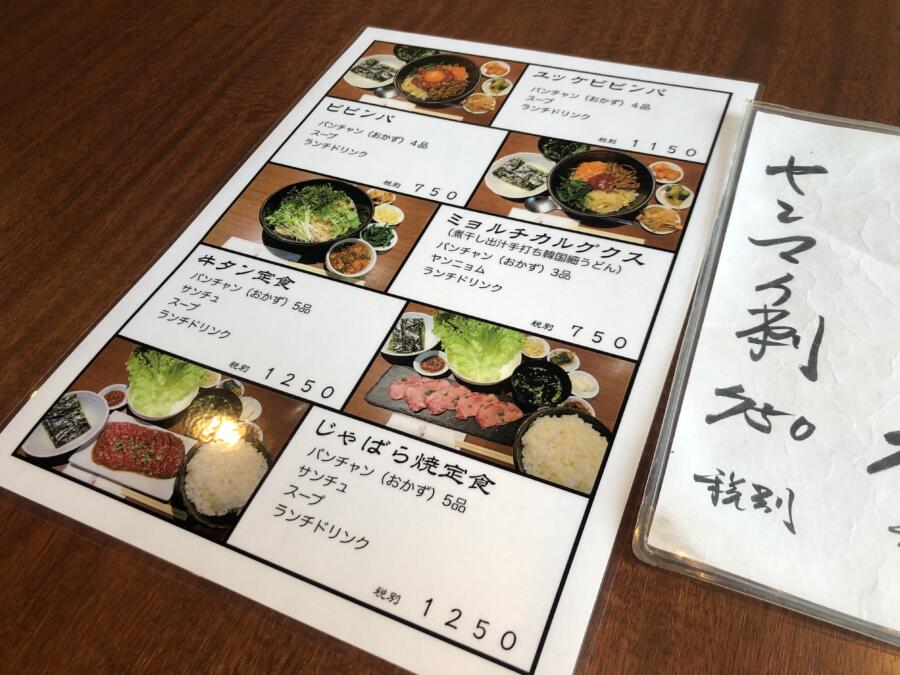 ユッケビビンバ
パンチャン（おかず）4品
スープ
ランチドリンク
税別 1150
ビビンバ
パンチャン（おかず）4品
スープ
ランチドリンク
税別 750
ミョルチカルグクス
（煮干し出汁手打ち韓国細うどん）
パンチャン（おかず）3品
ヤンニョム
ランチドリンク
税別 750
牛タン定食
パンチャン（おかず）5品
サンチュ
スープ
ランチドリンク
税別 1250
じゃばら焼定食
パンチャン（おかず）5品
サンチュ
スープ
ランチドリンク
税別 1250
センマイ刺
950
税別